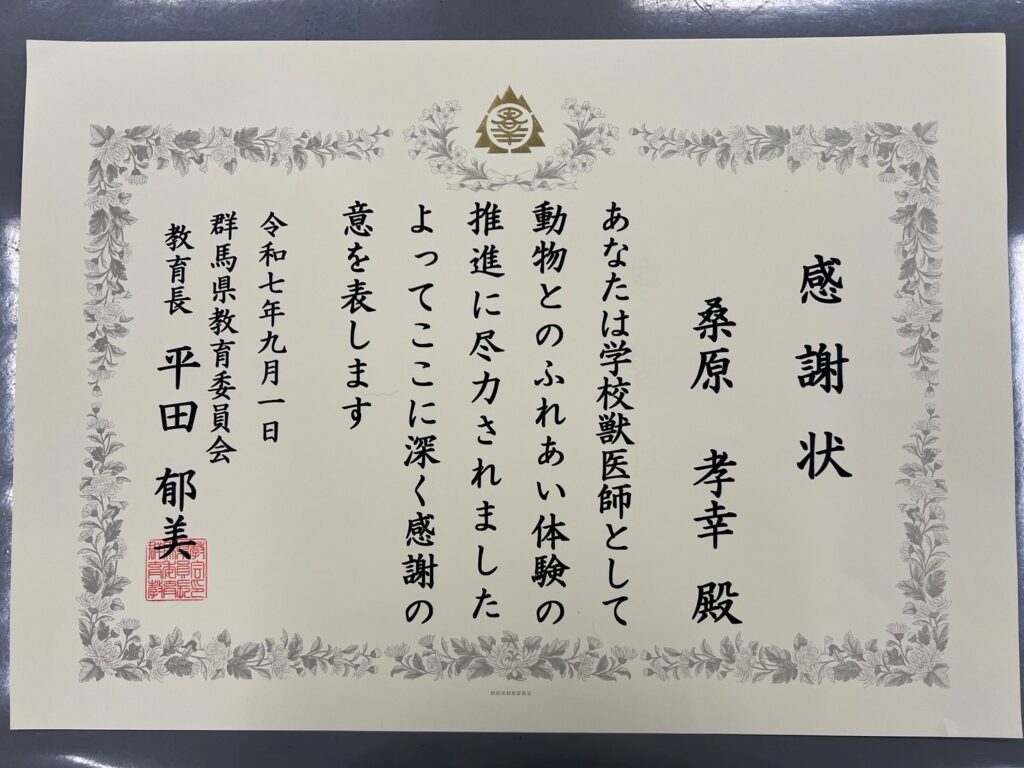 感謝状
桑原 孝幸 殿
あなたは学校獣医師として
動物とのふれあい体験の
推進に尽力されました
よってここに深く感謝の
意を表します
令和七年九月一日
群馬県教育委員会
教育長 平田 郁美